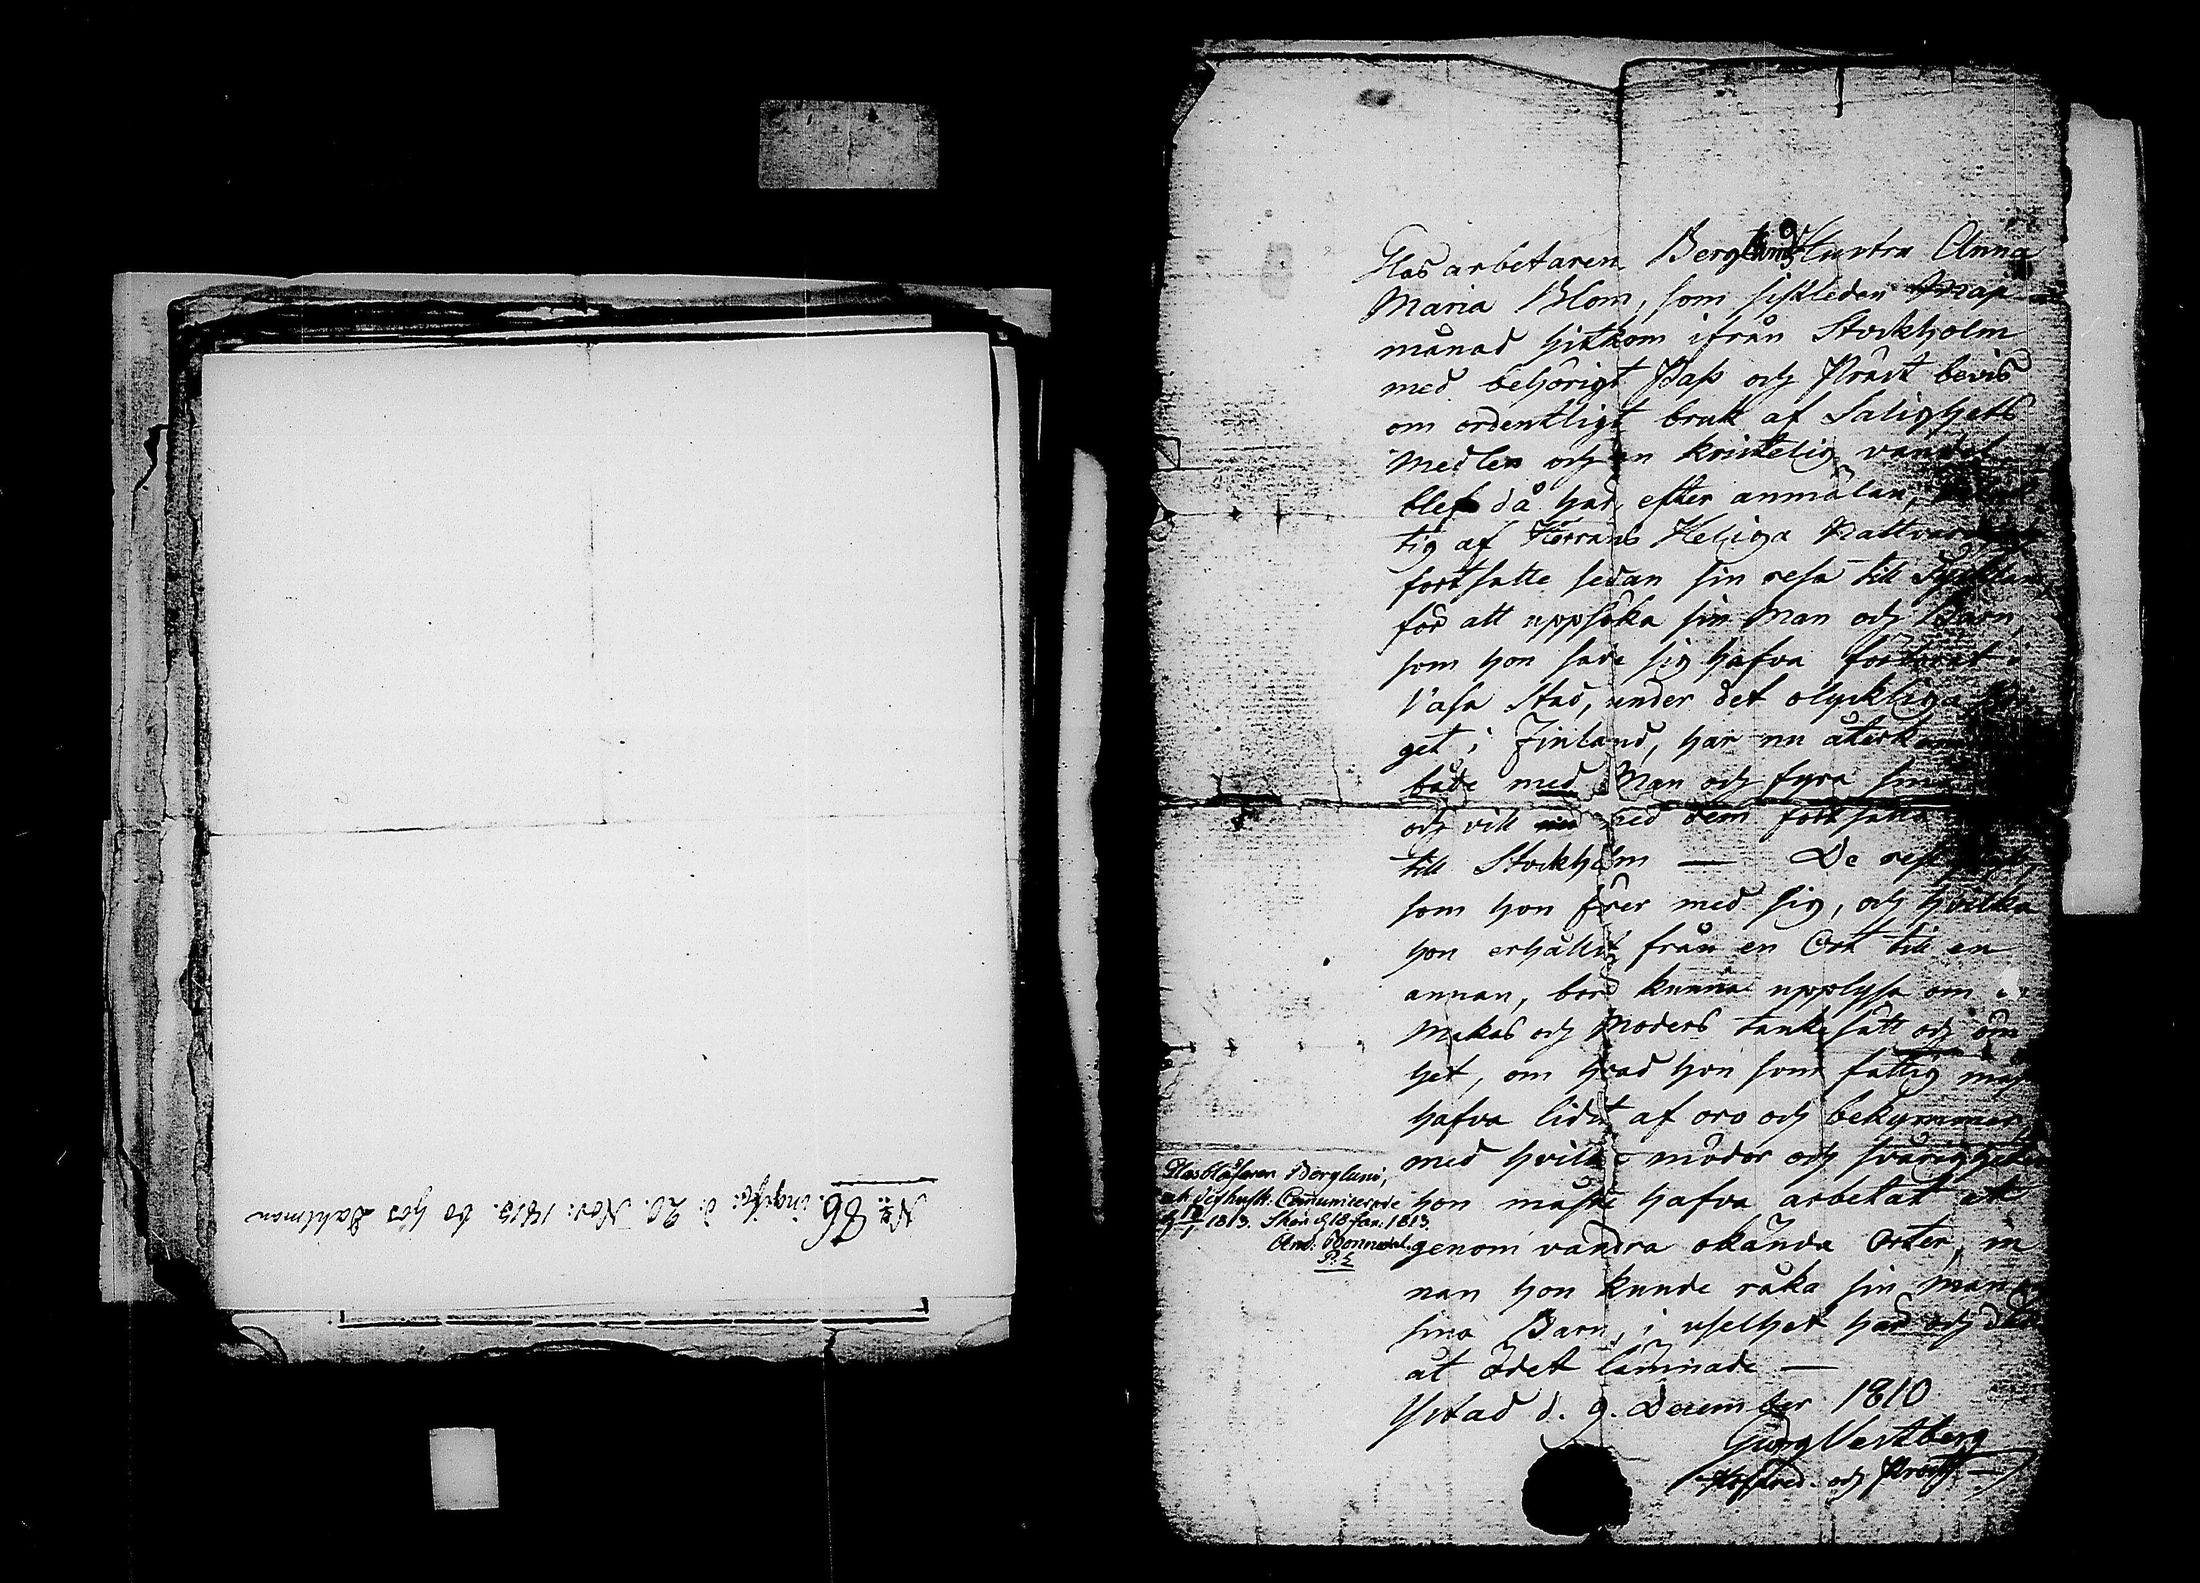 Nº: 86. ingifv: d: 20. Nov: 1815. bo hos Dahlman
Glasarbetaren Berglunds Hustru Anna
Maria Blom, som sistleden Maji
månad hitkom ifrån Stockholm
med behörigt Pass och Präst bevis
om ordentligt bruk af Salighets
Medlen och en kristelig vandel
blef då här, efter anmälan,
tig af Herrans Heliga Nattvard
fortsatte sedan sin resa till Tyskland
för att uppsöka sin Man och Barn,
som hon sade sig hafva förlorat i
Vasa Stad, under det olyckliga
get i Finland, har nu återkommit
både med Man och fyra små
och vill med dem fortsätta
till Stockholm — De
som hon förer med sig, och hvilka
hon erhållit från en Ort till en
annan, bord kunna upplysa om
Makas och Moders tankesätt och öm
het, om hvad hon som fattig
hafva lidit af oro och bekymmer
med hvilka mödor och svårigheter
hon måste hafva arbetat at
genom vandra okända Orter, in
nan hon kunde råka sin man
sina Barn, i uselhet här och där
åt ödet lämnade —
Ystad d. 9. December 1810
Georg Westberg
Hofpred. och Prost
Glasblåsaren Berglund,
och dess hustr. Communicerade
1813. 18 Jan: 1813.
And:
P: L: